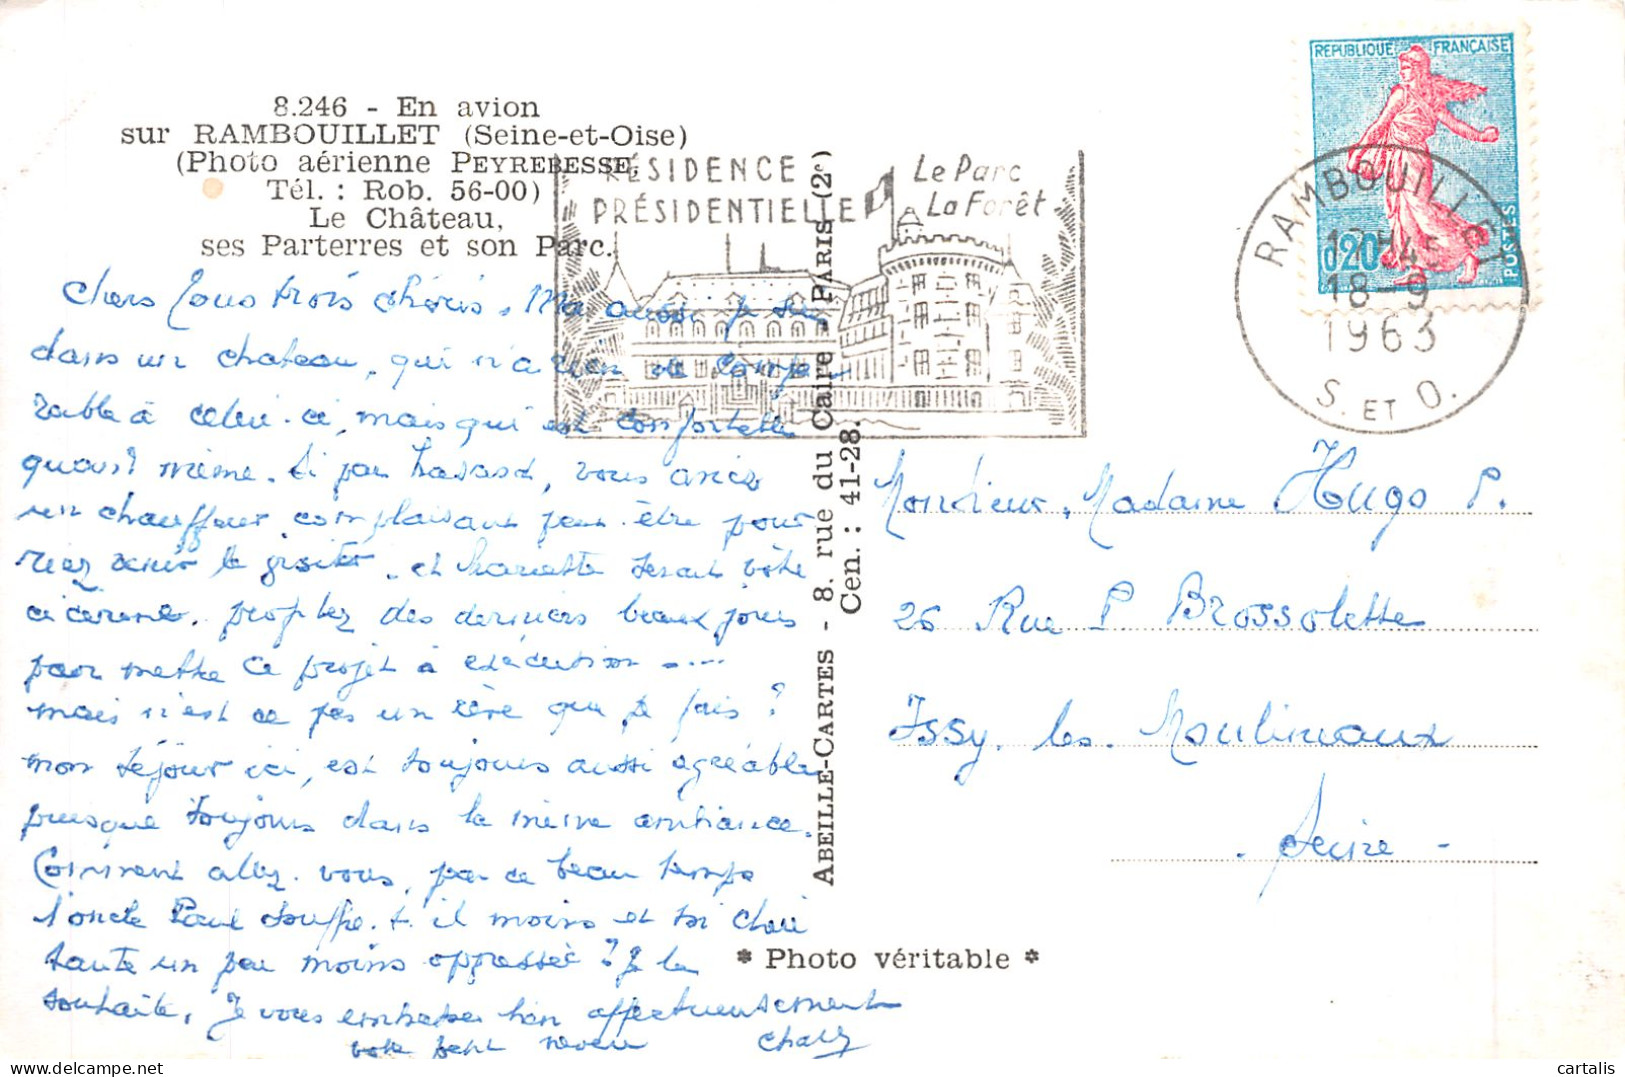 8.246 - En avion
sur RAMBOUILLET (Seine-et-Oise)
(Photo aérienne PEYREBESSE,
Tél. : Rob. 56-00)
Le Château,
ses Parterres et son Parc.
RÉSIDENCE
PRÉSIDENTIELLE
Le Parc
La Forêt
REPUBLIQUE FRANÇAISE
0,20
POSTES
RAMBOUILLET
18-9
1963
S. ET O.
Chers tous trois chéris. Moi aussi je suis
dans un chateau, qui n'a rien de compa
rable à celui-ci, mais qui est confortable
quand même. Si par hasard, vous aviez
un chauffeur complaisant peut-être pour
riez venir le visiter. et Mariette serait vôtre
cicerone. profitez des derniers beaux jours
pour mettre ce projet à exécution ....
mais n'est ce pas un rêve que je fais ?
mon séjour ici, est toujours aussi agréable
puisque toujours dans la même ambiance.
Comment allez-vous, par ce beau temps
l'oncle Paul souffre-t-il moins et toi chère
tante un peu moins oppressée ? Je le
souhaite, Je vous embrasse bien affectueusement
votre petit neveu
ABEILLE-CARTES - 8, rue du Caire - PARIS (2e)
Cen. : 41-28.
Monsieur, Madame Hugo P.
26 Rue P Brossolette
Issy. les. Moulineaux
- Seine -
* Photo véritable *
delcampe.net
cartalis